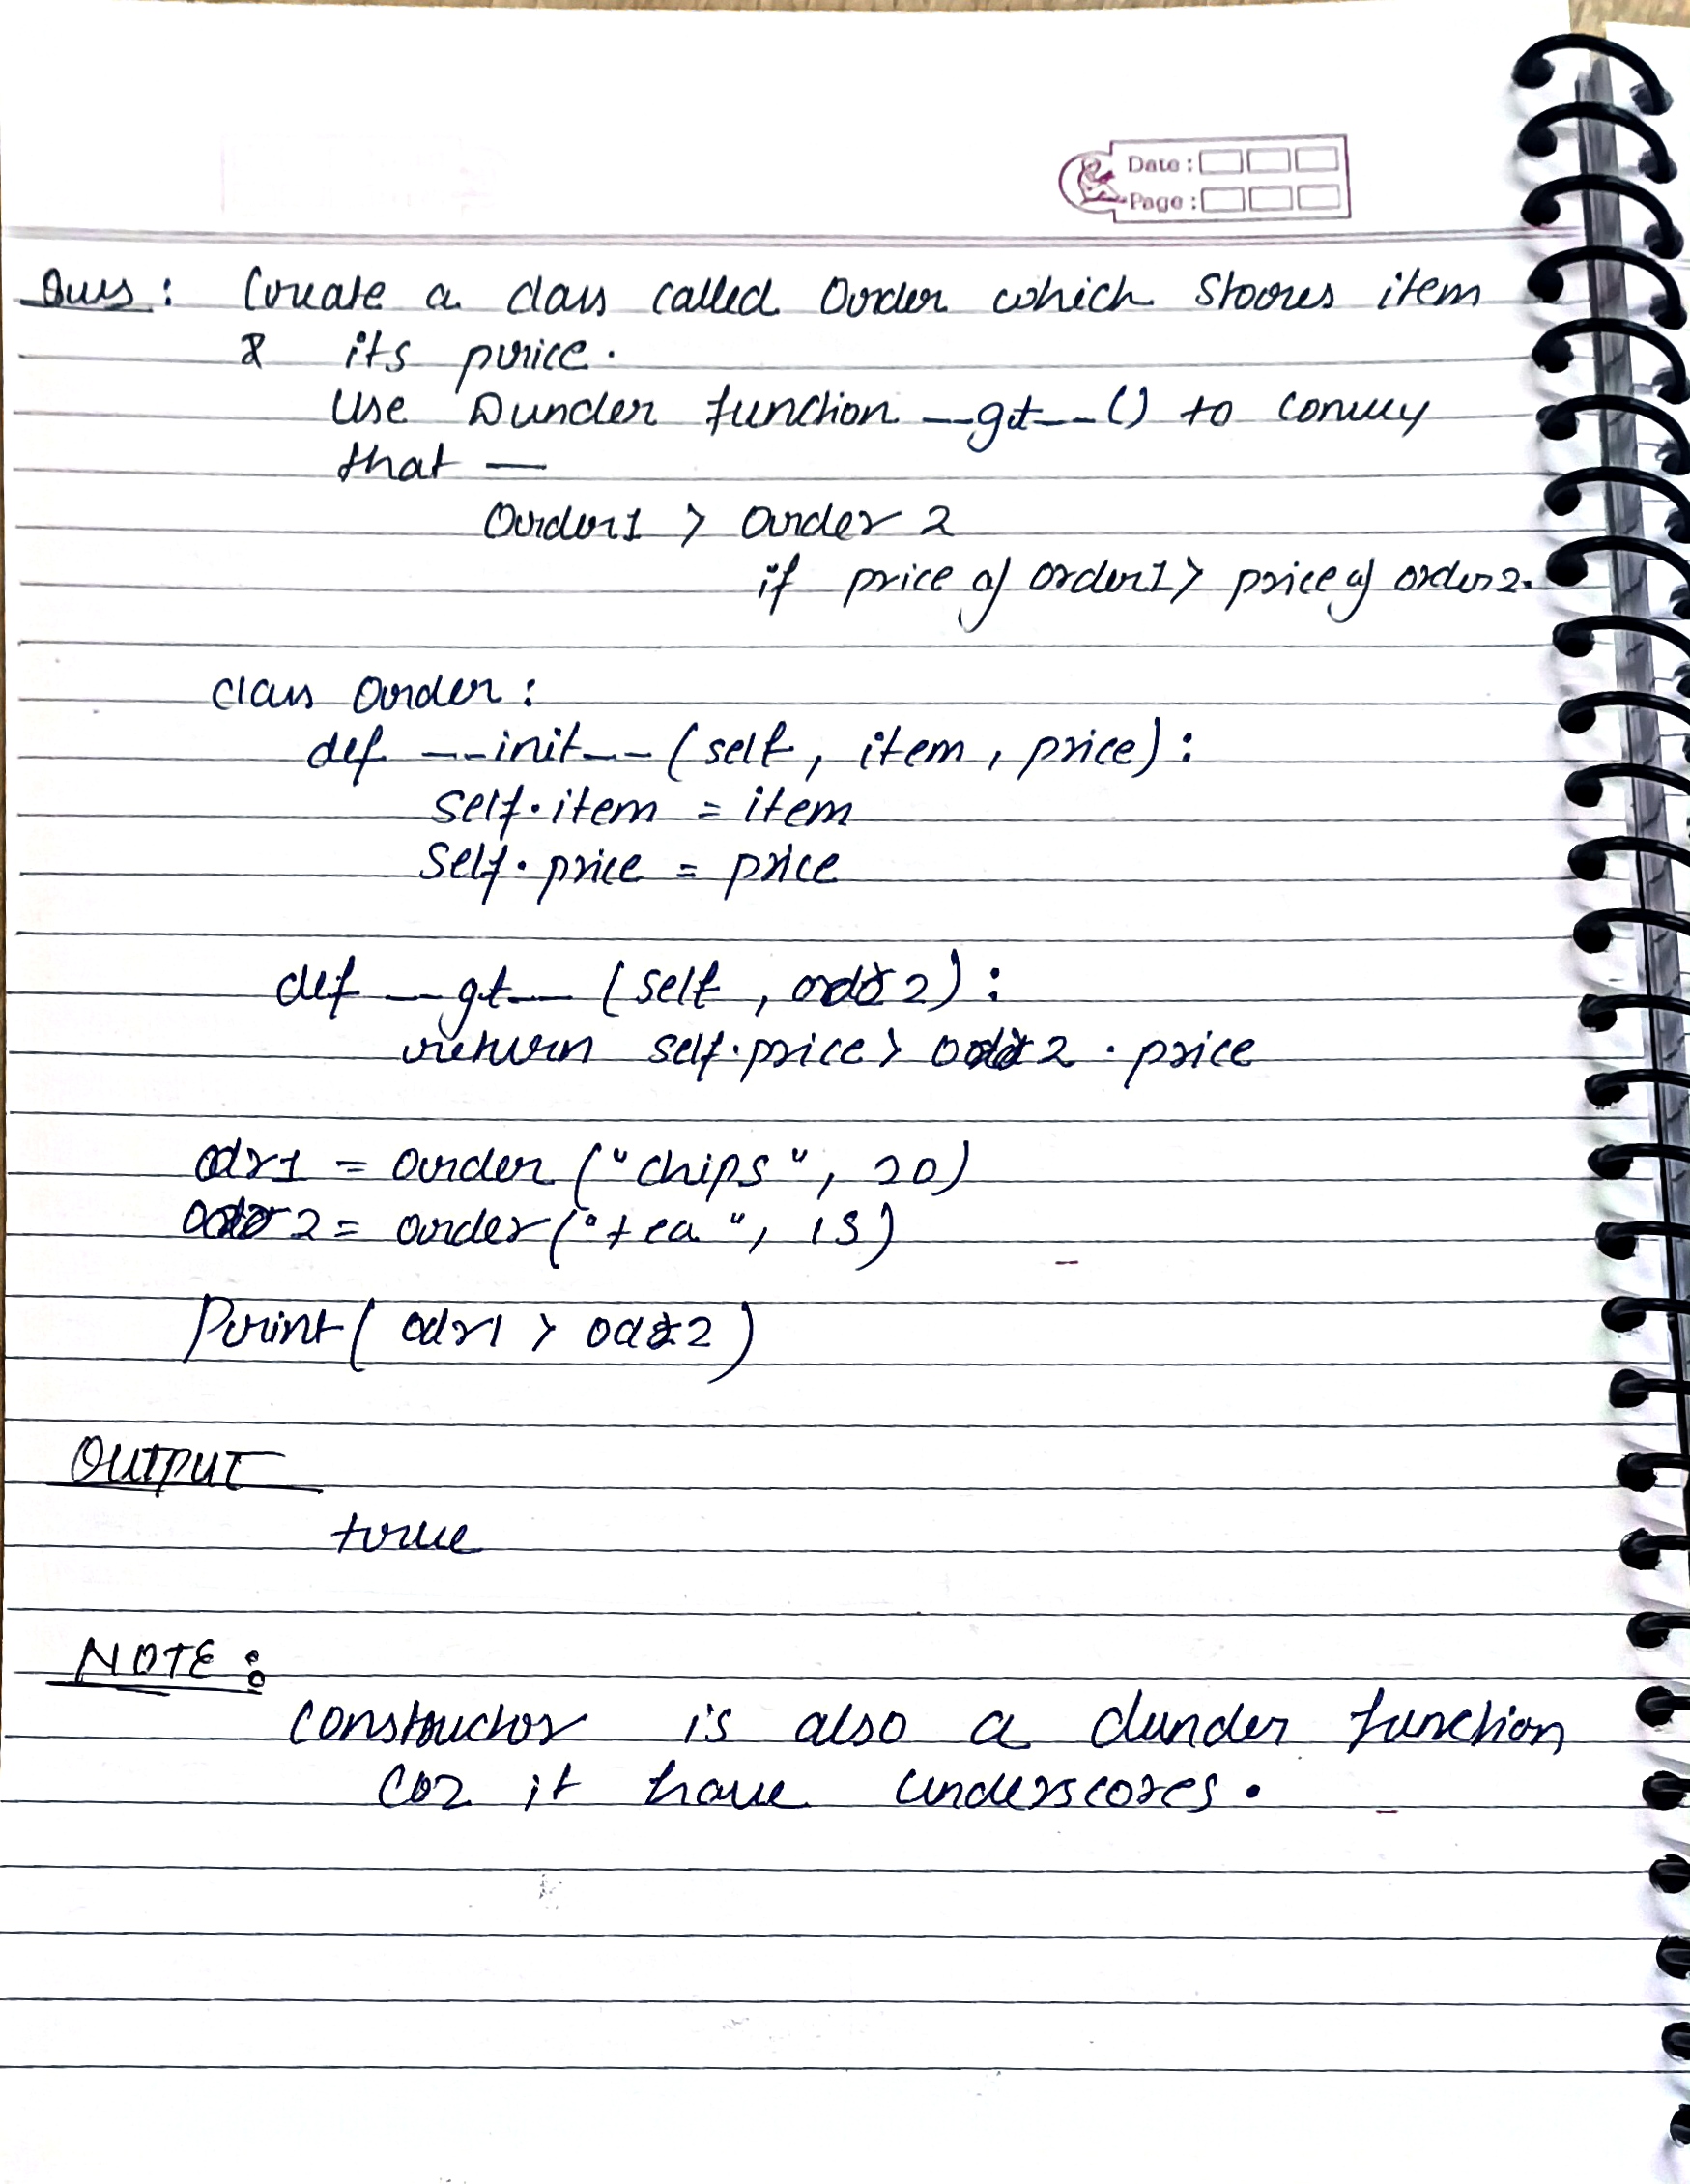 Date :
Page :
Ques : Create a class called Order which stores item
& its price.
Use Dunder function __gt__() to convey
that —
Order1 > order 2
if price of order1 > price of order2.
class Order :
def __init__ (self, item, price) :
self.item = item
self.price = price
def __gt__ (self, odr2) :
return self.price > odr2.price
odr1 = order ("chips", 20)
odr2 = order ("tea", 15)
Print( odr1 > odr2 )
OUTPUT
true
NOTE :
constructor is also a dunder function
coz it have underscores.